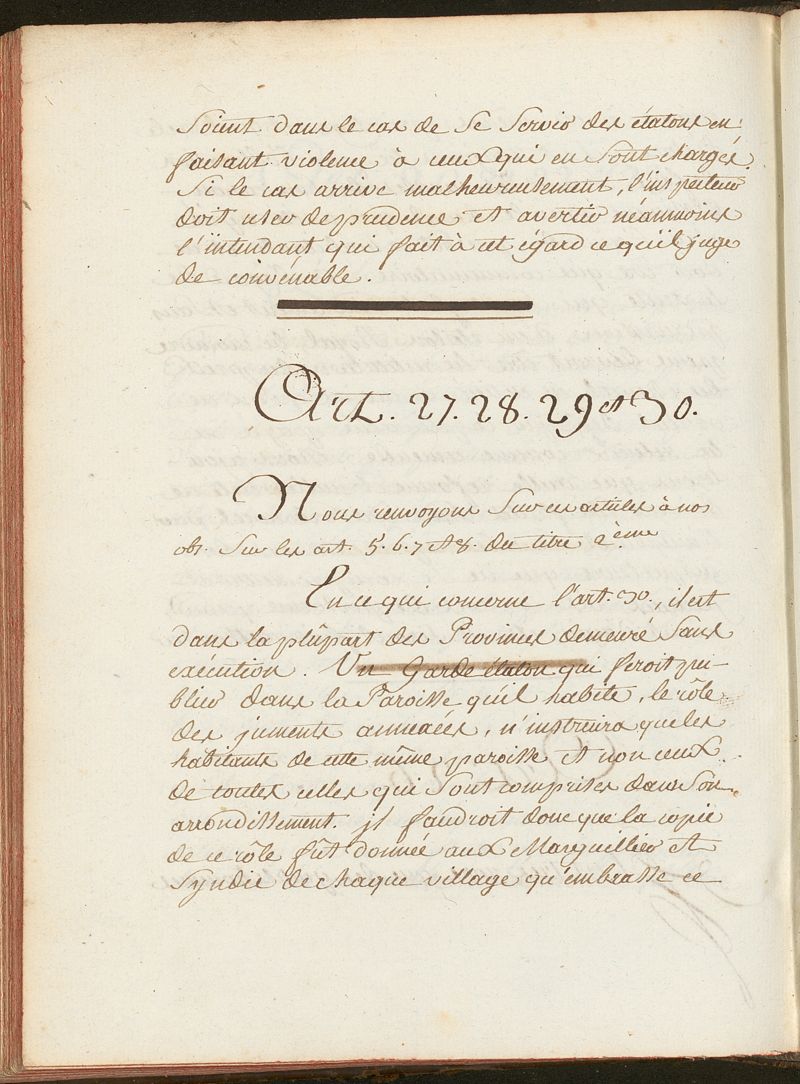 soient dans le cas de se servir des étalons en
faisant violence à ceux qui en sont chargés.
Si le cas arrive malheureusement, l'inspecteur
doit user de prudence et avertir néanmoins
l'intendant qui fait à cet égard ce qu'il juge
de convénable.
Art. 27. 28. 29 et 30.
Nous renvoyons sur ces articles à nos
obs. sur les art. 5. 6. 7 et 8. du titre 2ème
En ce qui concerne l'art. 30., il est
dans la plûpart des Provinces demeuré sans
exécution. Un Garde étalon qui feroit pu-
blier dans la Paroisse qu'il habite, le rôle
des juments annexées, n'instruira que les
habitants de cette même paroisse et non ceux
de toutes celles qui sont comprises dans son
arrondissement. jl faudroit donc que la copie
de ce rôle fût donnée aux Marguillier et
Syndic de chaque village qu'embrasse ce